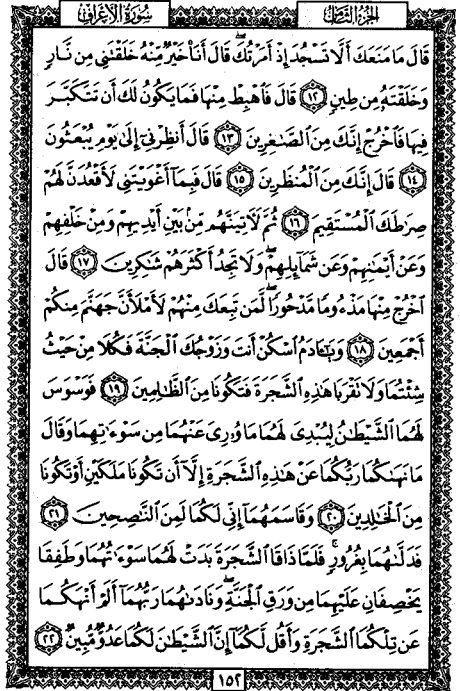 سُورَةُ الأَعْرَافِ الجُزْءُ الثَّامِنُ
قَالَ مَا مَنَعَكَ أَلَّا تَسْجُدَ إِذْ أَمَرْتُكَ ۖ قَالَ أَنَا۠ خَيْرٌ مِّنْهُ خَلَقْتَنِى مِن نَّارٍ
وَخَلَقْتَهُۥ مِن طِينٍ ١٢ قَالَ فَٱهْبِطْ مِنْهَا فَمَا يَكُونُ لَكَ أَن تَتَكَبَّرَ
فِيهَا فَٱخْرُجْ إِنَّكَ مِنَ ٱلصَّٰغِرِينَ ١٣ قَالَ أَنظِرْنِىٓ إِلَىٰ يَوْمِ يُبْعَثُونَ
١٤ قَالَ إِنَّكَ مِنَ ٱلْمُنظَرِينَ ١٥ قَالَ فَبِمَآ أَغْوَيْتَنِى لَأَقْعُدَنَّ لَهُمْ
صِرَٰطَكَ ٱلْمُسْتَقِيمَ ١٦ ثُمَّ لَءَاتِيَنَّهُم مِّنۢ بَيْنِ أَيْدِيهِمْ وَمِنْ خَلْفِهِمْ
وَعَنْ أَيْمَٰنِهِمْ وَعَن شَمَآئِلِهِمْ ۖ وَلَا تَجِدُ أَكْثَرَهُمْ شَٰكِرِينَ ١٧ قَالَ
ٱخْرُجْ مِنْهَا مَذْءُومًا مَّدْحُورًا ۖ لَّمَن تَبِعَكَ مِنْهُمْ لَأَمْلَأَنَّ جَهَنَّمَ مِنكُمْ
أَجْمَعِينَ ١٨ وَيَٰٓـَٔادَمُ ٱسْكُنْ أَنتَ وَزَوْجُكَ ٱلْجَنَّةَ فَكُلَا مِنْ حَيْثُ
شِئْتُمَا وَلَا تَقْرَبَا هَٰذِهِ ٱلشَّجَرَةَ فَتَكُونَا مِنَ ٱلظَّٰلِمِينَ ١٩ فَوَسْوَسَ
لَهُمَا ٱلشَّيْطَٰنُ لِيُبْدِىَ لَهُمَا مَا وُۥرِىَ عَنْهُمَا مِن سَوْءَٰتِهِمَا وَقَالَ
مَا نَهَىٰكُمَا رَبُّكُمَا عَنْ هَٰذِهِ ٱلشَّجَرَةِ إِلَّآ أَن تَكُونَا مَلَكَيْنِ أَوْ تَكُونَا
مِنَ ٱلْخَٰلِدِينَ ٢٠ وَقَاسَمَهُمَآ إِنِّى لَكُمَا لَمِنَ ٱلنَّٰصِحِينَ ٢١
فَدَلَّىٰهُمَا بِغُرُورٍ ۚ فَلَمَّا ذَاقَا ٱلشَّجَرَةَ بَدَتْ لَهُمَا سَوْءَٰتُهُمَا وَطَفِقَا
يَخْصِفَانِ عَلَيْهِمَا مِن وَرَقِ ٱلْجَنَّةِ ۖ وَنَادَىٰهُمَا رَبُّهُمَآ أَلَمْ أَنْهَكُمَا
عَن تِلْكُمَا ٱلشَّجَرَةِ وَأَقُل لَّكُمَآ إِنَّ ٱلشَّيْطَٰنَ لَكُمَا عَدُوٌّ مُّبِينٌ ٢٢
١٥٢